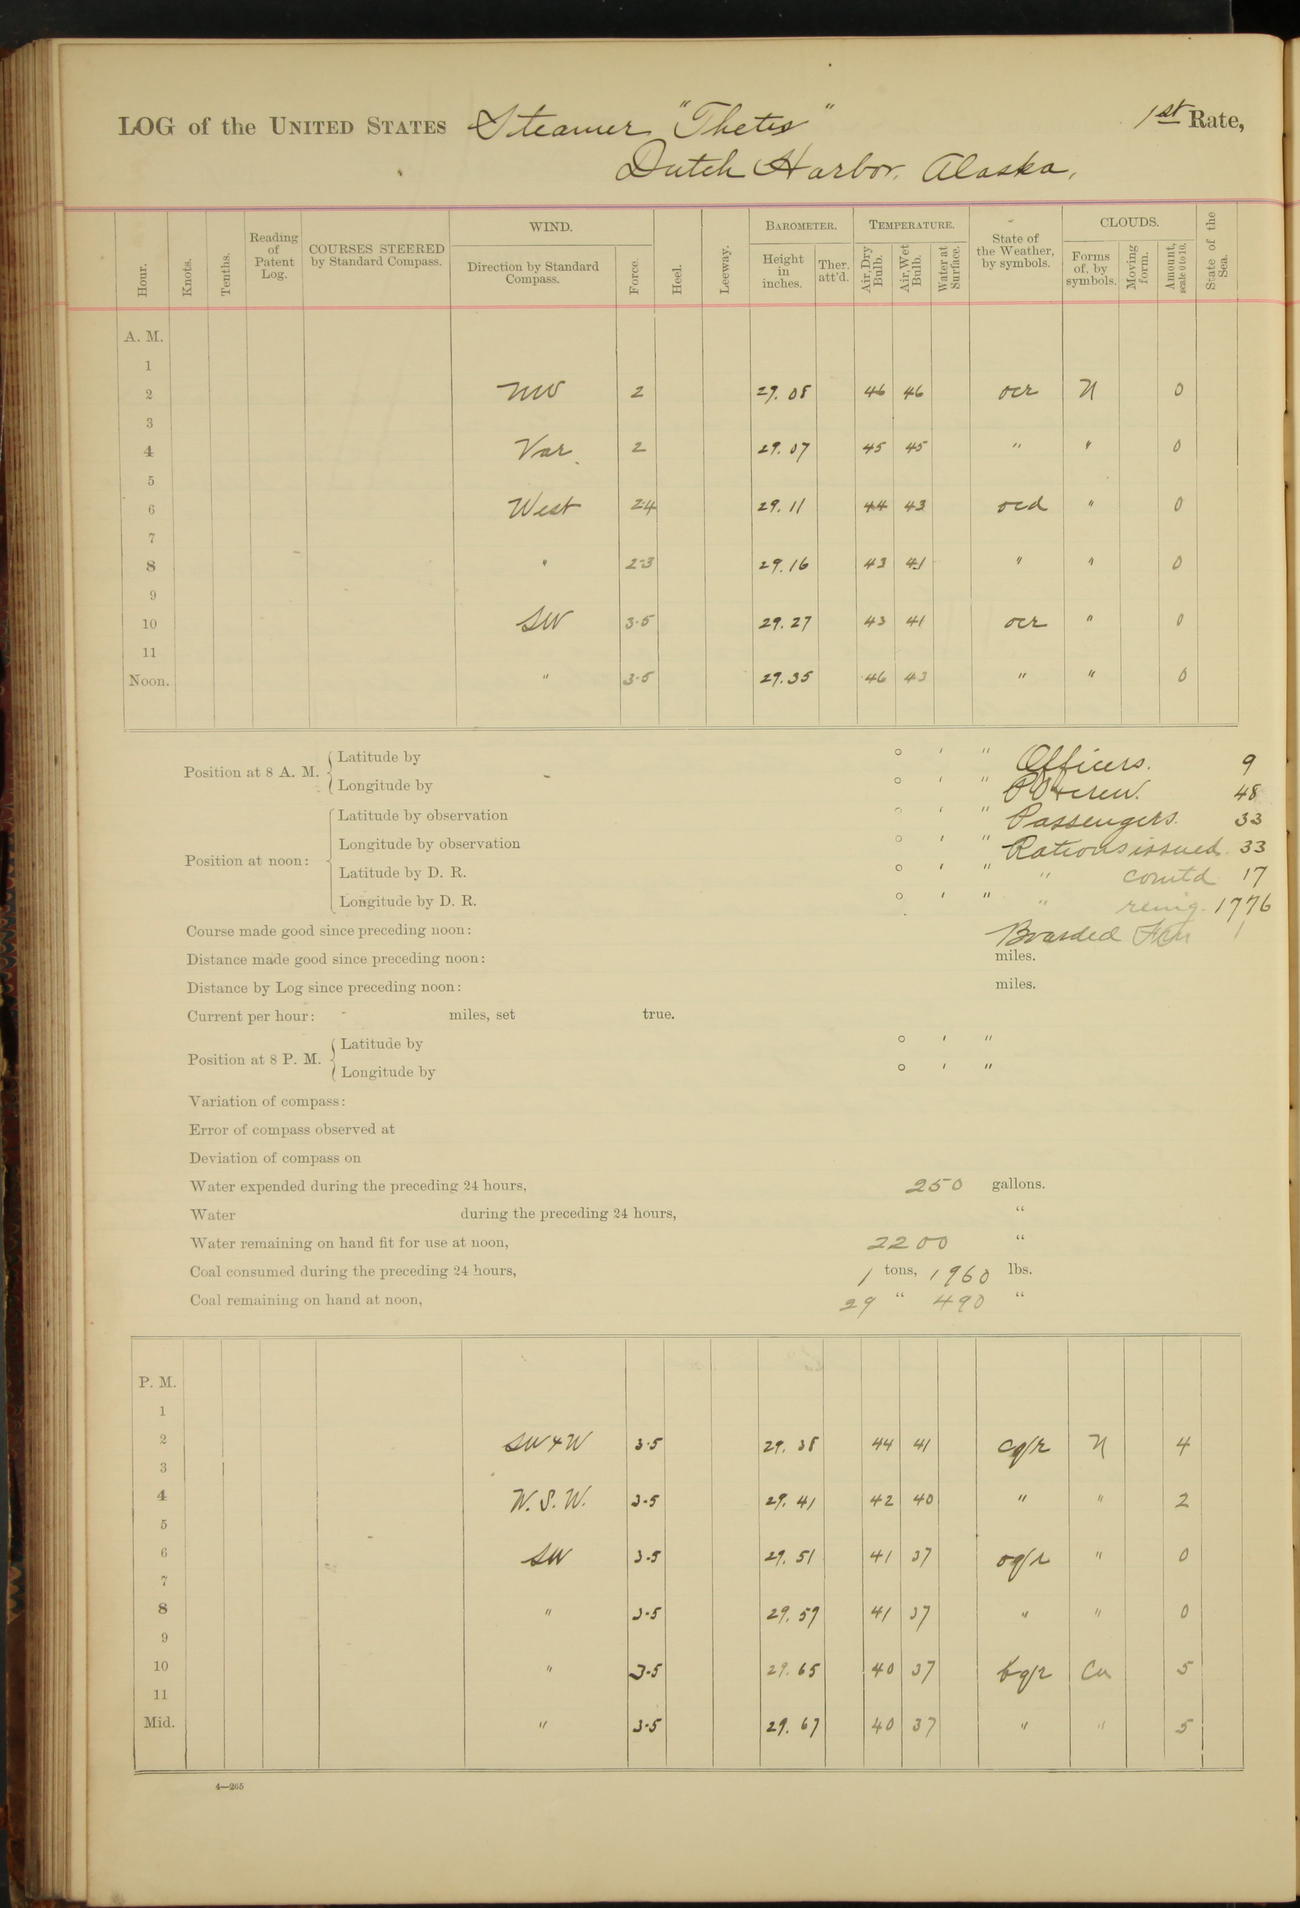 LOG of the UNITED STATES Steamer "Thetis" 1st Rate,
Dutch Harbor. Alaska.
Hour. Knots. Tenths. Reading of Patent Log. COURSES STEERED by Standard Compass. WIND. Direction by Standard Compass. Force. Heel. Leeway. BAROMETER. Height in inches. Ther. att'd. TEMPERATURE. Air, Dry Bulb. Air, Wet Bulb. Water at Surface. State of the Weather, by symbols. CLOUDS. Forms of, by symbols. Moving form. Amount, scale 0 to 10. State of the Sea.
A. M.
1
2 NW 2 29.08 46 46 ocr N 0
3
4 Var. 2 29.07 45 45 " " 0
5
6 West 2-4 29.11 44 43 ocd " 0
7
8 " 2-3 29.16 43 41 " " 0
9
10 SW 3-5 29.27 43 41 ocr " 0
11
Noon. " 3-5 29.35 46 43 " " 0
Position at 8 A. M. Latitude by ° ' " Officers. 9
Longitude by ° ' " P.O. & crew. 48
Position at noon: Latitude by observation ° ' " Passengers. 33
Longitude by observation ° ' " Rations issued. 33
Latitude by D. R. ° ' " " comtd 17
Longitude by D. R. ° ' " " remg. 1776
Course made good since preceding noon: Boarded 1
Distance made good since preceding noon: miles.
Distance by Log since preceding noon: miles.
Current per hour: miles, set true.
Position at 8 P. M. Latitude by ° ' "
Longitude by ° ' "
Variation of compass:
Error of compass observed at
Deviation of compass on
Water expended during the preceding 24 hours, 250 gallons.
Water during the preceding 24 hours, "
Water remaining on hand fit for use at noon, 2200 "
Coal consumed during the preceding 24 hours, 1 tons, 1960 lbs.
Coal remaining on hand at noon, 29 " 490 "
P. M.
1
2 SW x W 3-5 29.38 44 41 cq/r N 4
3
4 W.S.W. 3-5 29.41 42 40 " " 2
5
6 SW 3-5 29.51 41 37 oq/r " 0
7
8 " 3-5 29.59 41 37 " " 0
9
10 " 3-5 29.65 40 37 bq/r Cu 5
11
Mid. " 3-5 29.67 40 37 " " 5
4—265